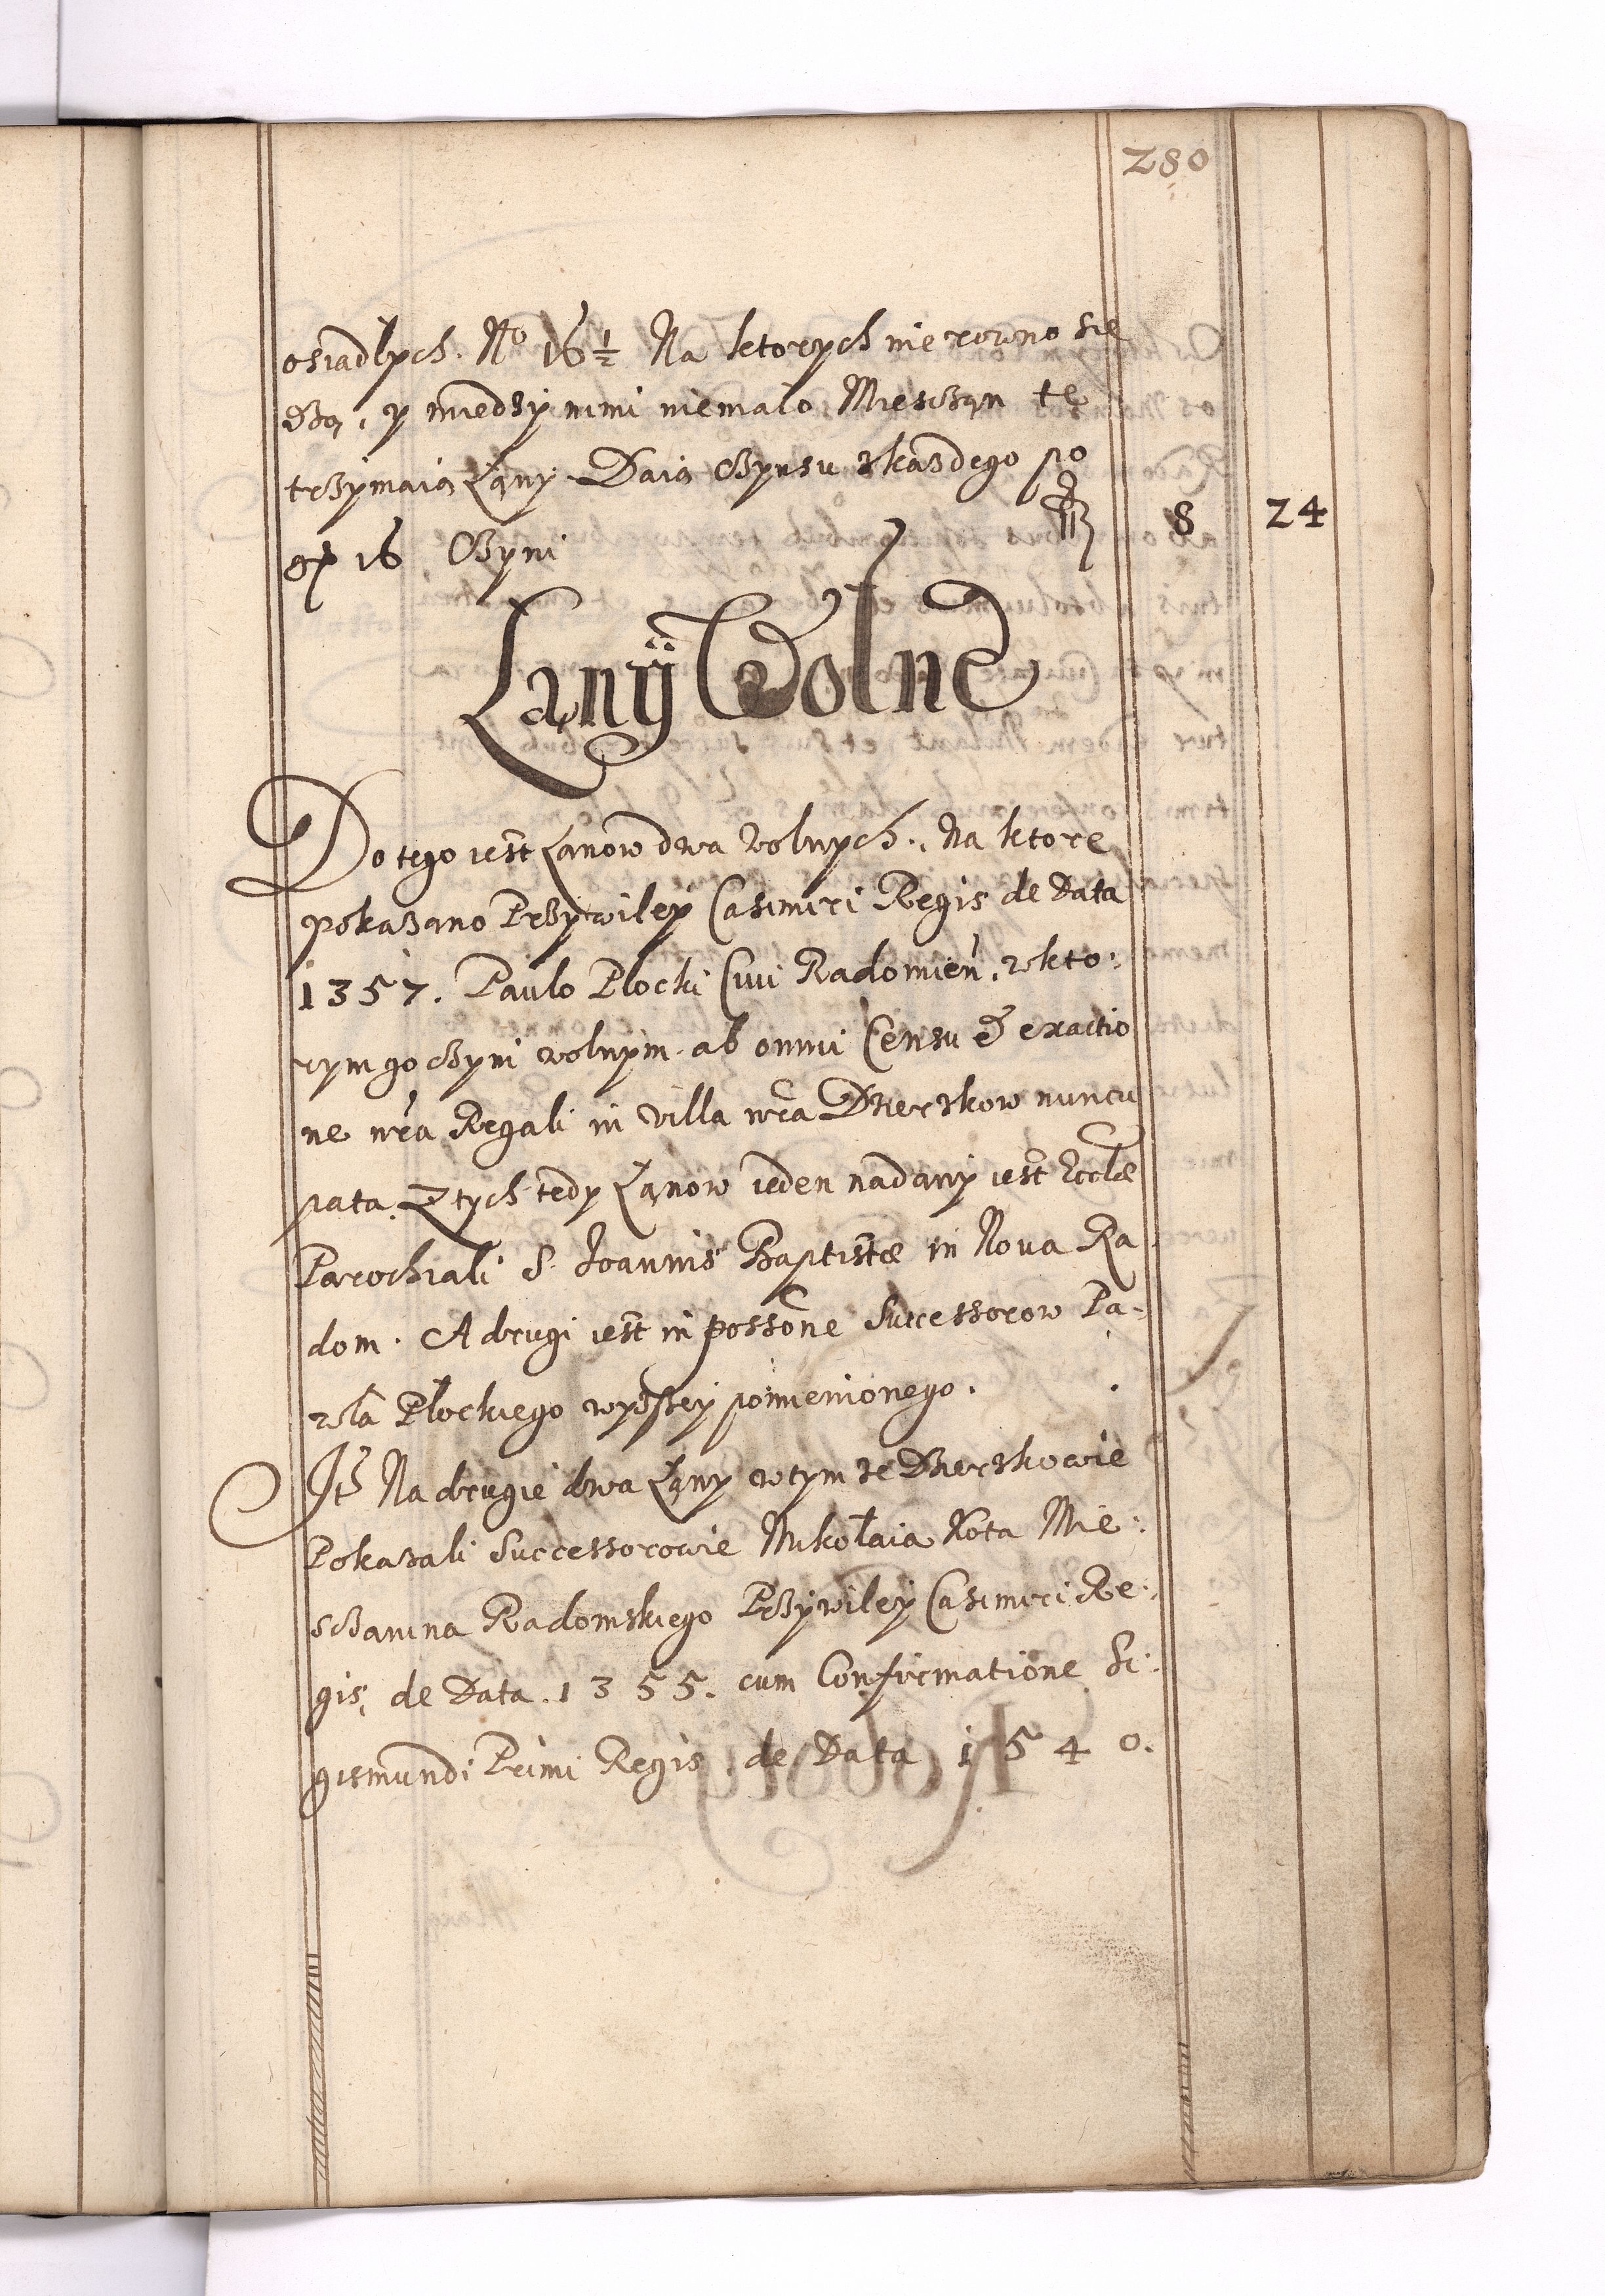 280
osiadłych. No 16 1/2 Na ktorych nie rowno sie
dzą, y miedzy nimi niemało Miesczan te
trzymaią Łany. Daią czynszu zkazdego po
gr 16 Czyni 8 24
Łany Wolne
Do tego iest Łanow dwa wolnych. Na ktore
pokazano Przywiley Casimiri Regis de Data
1357. Paulo Plocki Civi Radomien. w kto:
rym go czyni wolnym ab omni Censu & exactio
ne nra Regali in villa nra Dzierzkow nuncu
pata. Z tych tedy Łanow ieden nadany iest Eccłæ
Parochiali S. Joannis Baptistæ in Nova Ra
dom. A drugi iest in possone Successorow Pa-
wła Płockiego wyższey pomienionego.
It Na drugie dwa Łany w tym ze Dzierzkowie
Pokazali Successorowie Mikołaia Kota Mie:
sczanina Radomskiego Przywiley Casimiri Re:
gis, de Data. 1355. cum Confirmatione Si:
gismundi Primi Regis de Data 1540.